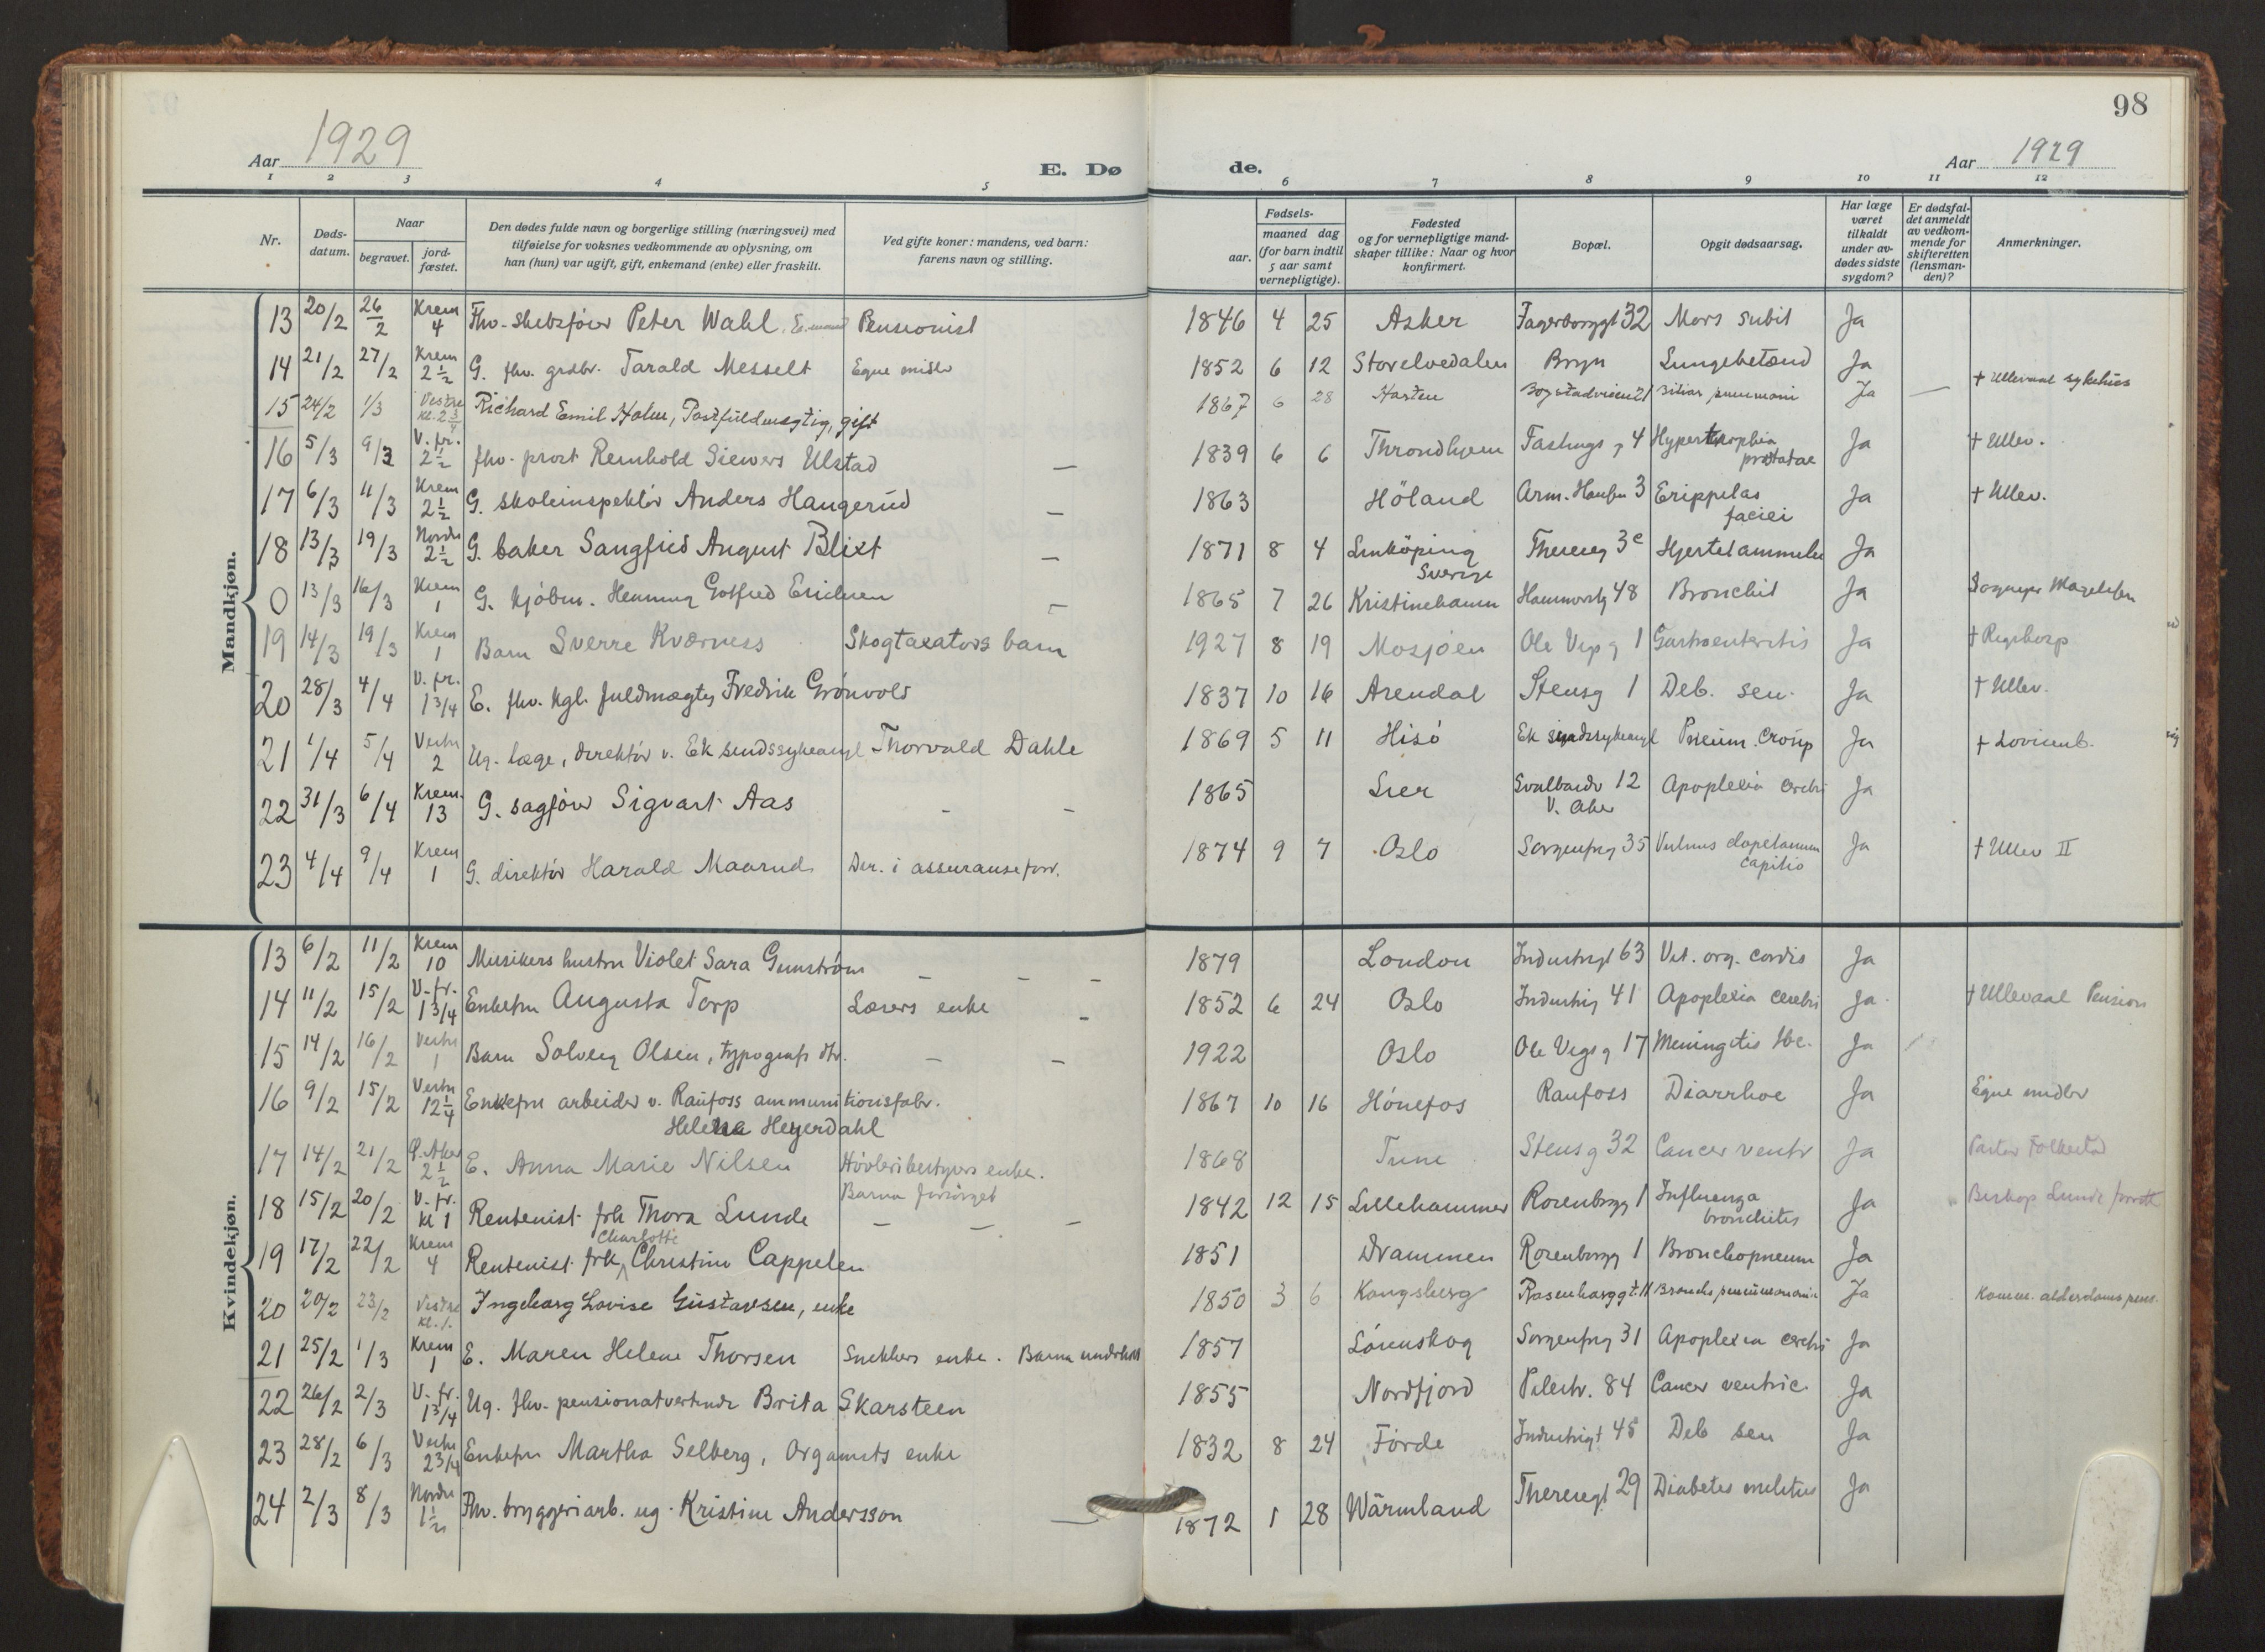 98
Aar 1929
E. Dø de.
Aar 1929
1 2 3 4 5 6 7 8 9 10 11 12
Nr.
Døds-datum.
Naar
begravet.
jord-fæstet.
Den dødes fulde navn og borgerlige stilling (næringsvei) med
tilføielse for voksnes vedkommende av oplysning, om
han (hun) var ugift, gift, enkemand (enke) eller fraskilt.
Ved gifte koner: mandens, ved barn:
farens navn og stilling.
Fødsels-
aar.
maaned dag
(for barn indtil
5 aar samt
vernepligtige).
Fødested
og for vernepligtige mand-
skaper tillike: Naar og hvor
konfirmert.
Bopæl.
Opgit dødsaarsag.
Har læge
været
tilkaldt
under av-
dødes sidste
sygdom?
Er dødsfal-
det anmeldt
av vedkom-
mende for
skifteretten
(lensman-
den)?
Anmerkninger.
Mandkjøn.
13 20/2 26/2 Krem 4 Fhv. skibsfører Peter Wahl, E.mand Pensionist 1846 4 25 Asker Fagerborggt 32 Mors subit Ja
14 21/2 27/2 Krem 2½ G. fhv. grdbr. Tarald Messelt Egne midler 1852 6 12 Storelvedalen Bryn Lungebetænd Ja + Ullevaal sykehus
15 24/2 1/3 Vestre kl. 2¾ Richard Emil Holm, Postfuldmægtig, gift 1867 6 28 Horten Bogstadveien 21 pneumoni Ja —
16 5/3 9/3 V. fr. 2½ fhv. prost Reinhold Siewers Ulstad — 1839 6 6 Throndhjem Fastings g 4 Hypertrophia prostatae Ja + Ullev.
17 6/3 11/3 Krem 2½ G. skoleinspektør Anders Haugerud — 1863 Höland Arm. Hansens 3 Erippelas faciei Ja + Ullev.
18 13/3 19/3 Nordre 2½ G. baker Sangfrid August Blixt — 1871 8 4 Linköping Sverige Thereseg 3c Hjertelammelse Ja
0 13/3 16/3 Krem 1 G. kjøbm. Henning Gotfred Erichsen — 1865 7 26 Kristinehamn Hammerstg 48 Bronchit Ja Sognepr Magelssen
19 14/3 19/3 Krem 1 Barn Sverre Kværness Skogtaxators barn 1927 8 19 Mosjøen Ole Vigs g 1 Gastroenteritis Ja + Rigshosp
20 28/3 4/4 V. fr. 1 3/4 E. fhv. kgl. fuldmægtig Fredrik Grönvold 1837 10 16 Arendal Stensg 1 Deb. sen. Ja + Ullev.
21 1/4 5/4 Vestre 2 Ug. læge, direktör v. Ek sindssykeasyl Thorvald Dahle 1869 5 11 Hisö Ek sindssykeasyl Pneum. croup Ja + Lovisenb.
22 31/3 6/4 Krem. 13 G. sagförer Sigvart Aas — — 1865 Lier Svalbardv 12 V. Aker Apoplexia cerebri Ja
23 4/4 9/4 Krem 1 G. direktör Harald Maarud Dir. i assuranseforr. 1874 9 7 Oslo Sorgenfrig 35 Vulnus capitis Ja + Ullev II
Kvindekjøn.
13 6/2 11/2 Krem 10 Musikers hustru Violet Sara Gunström — — — 1879 London Industrigt 63 Vit. org. cordis Ja
14 11/2 15/2 V. fr. 1 3/4 Enkefru Augusta Torp Lærers enke — 1852 6 24 Oslo Industrig 41 Apoplexia cerebri Ja + Ullevaal Pension
15 14/2 16/2 Vestre 1 Barn Solveig Olsen, typografs dtr. — — 1922 Oslo Ole Vigs g 17 Meningitis tbc. Ja
16 9/2 15/2 Vestre 12¼ Enkefru arbeider v. Raufoss ammunitionsfabr. 1867 10 16 Hönefos Raufoss Diarrhoe Ja Egne midler
Helena Heyerdahl
17 14/2 21/2 Ö. Aker 2½ E. Anna Marie Nilsen Høvleribestyrers enke. 1868 Tune Stensg 32 Cancer ventr Ja Pastor Folkestad
Barna forsörget
18 15/2 20/2 V. fr. kl 1 Rentenist frk Thora Lunde — — — 1842 12 15 Lillehammer Rosenborgg 1 Influenza bronchitis Ja Biskop Lunde forrett
19 17/2 22/2 Krem 4 Rentenist frk Charlotte Christine Cappelen 1851 Drammen Rosenborgg 1 Bronchopneum Ja
20 20/2 23/2 Vestre kl. 1. Ingeborg Lovise Gustavsen, enke 1850 3 6 Kongsberg Rosenborggt. 11 Broncho pneumonia Ja Komm. alderdoms pens.
21 25/2 1/3 Krem 1 E. Maren Helene Thorsen Snekkers enke. Barna underhold 1857 Lörenskog Sorgenfrig 31 Apoplexia cerebri Ja
22 26/2 2/3 V. fr. 1 3/4 Ug. fhv. pensionatvertinde Brita Skarsteen 1855 Nordfjord Pilestr. 84 Cancer ventric. Ja
23 28/2 6/3 Vestre 2 3/4 Enkefru Martha Selberg, Organists enke 1832 8 24 Förde Industrigt 45 Deb sen Ja
24 2/3 8/3 Nordre 1½ Fhv. bryggeriarb. ug. Kristine Andersson — 1872 1 28 Wärmland Theresegt 29 Diabetes melitus Ja